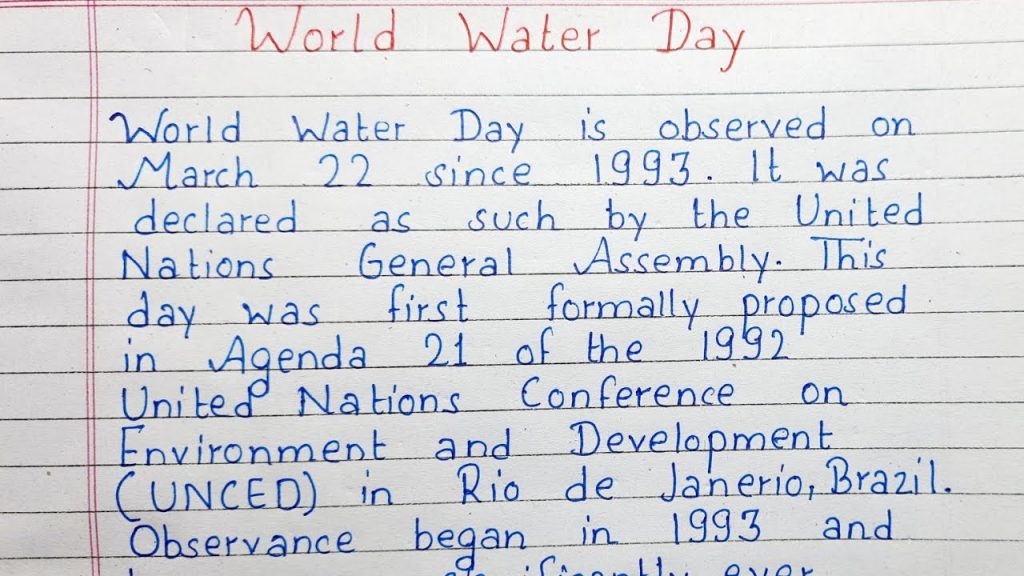 World Water Day
World Water Day is observed on
March 22 since 1993. It was
declared as such by the United
Nations General Assembly. This
day was first formally proposed
in Agenda 21 of the 1992
United Nations Conference on
Environment and Development
(UNCED) in Rio de Janerio, Brazil.
Observance began in 1993 and
ever